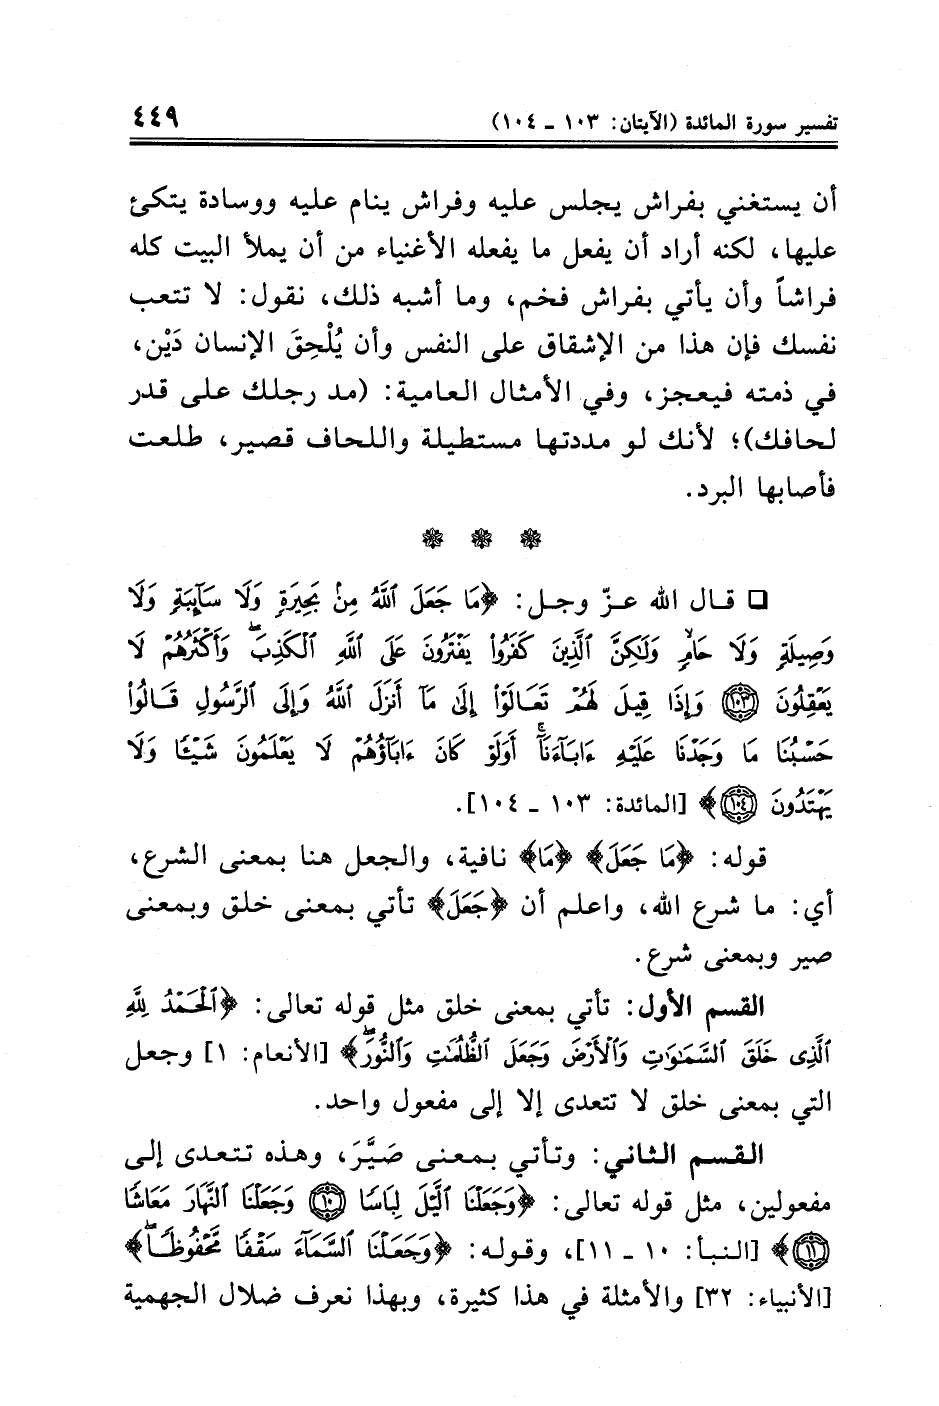 تفسير سورة المائدة (الآيتان: ١٠٣ ـ ١٠٤) ٤٤٩
أن يستغني بفراش يجلس عليه وفراش ينام عليه ووسادة يتكئ
عليها، لكنه أراد أن يفعل ما يفعله الأغنياء من أن يملأ البيت كله
فراشاً وأن يأتي بفراش فخم، وما أشبه ذلك، نقول: لا تتعب
نفسك فإن هذا من الإشقاق على النفس وأن يُلْحِقَ الإنسان دَيْن،
في ذمته فيعجز، وفي الأمثال العامية: (مد رجلك على قدر
لحافك)؛ لأنك لو مددتها مستطيلة واللحاف قصير، طلعت
فأصابها البرد.
❋ ❋ ❋
❑ قال الله عزّ وجل: ﴿مَا جَعَلَ ٱللَّهُ مِنۢ بَحِيرَةٍ وَلَا سَآئِبَةٍ وَلَا
وَصِيلَةٍ وَلَا حَامٍۙ وَلَٰكِنَّ ٱلَّذِينَ كَفَرُوا۟ يَفْتَرُونَ عَلَى ٱللَّهِ ٱلْكَذِبَۖ وَأَكْثَرُهُمْ لَا
يَعْقِلُونَ ١٠٣ وَإِذَا قِيلَ لَهُمْ تَعَالَوْا۟ إِلَىٰ مَآ أَنزَلَ ٱللَّهُ وَإِلَى ٱلرَّسُولِ قَالُوا۟
حَسْبُنَا مَا وَجَدْنَا عَلَيْهِ ءَابَآءَنَآۚ أَوَلَوْ كَانَ ءَابَآؤُهُمْ لَا يَعْلَمُونَ شَيْـًٔا وَلَا
يَهْتَدُونَ ١٠٤﴾ [المائدة: ١٠٣ ـ ١٠٤].
قوله: ﴿مَا جَعَلَ﴾ ﴿مَا﴾ نافية، والجعل هنا بمعنى الشرع،
أي: ما شرع الله، واعلم أن ﴿جَعَلَ﴾ تأتي بمعنى خلق وبمعنى
صير وبمعنى شرع.
القسم الأول: تأتي بمعنى خلق مثل قوله تعالى: ﴿ٱلْحَمْدُ لِلَّهِ
ٱلَّذِى خَلَقَ ٱلسَّمَٰوَٰتِ وَٱلْأَرْضَ وَجَعَلَ ٱلظُّلُمَٰتِ وَٱلنُّورَۖ﴾ [الأنعام: ١] وجعل
التي بمعنى خلق لا تتعدى إلا إلى مفعول واحد.
القسم الثاني: وتأتي بمعنى صَيَّرَ، وهذه تتعدى إلى
مفعولين، مثل قوله تعالى: ﴿وَجَعَلْنَا ٱلَّيْلَ لِبَاسًا ١٠ وَجَعَلْنَا ٱلنَّهَارَ مَعَاشًا
١١﴾ [النبأ: ١٠ ـ ١١]، وقوله: ﴿وَجَعَلْنَا ٱلسَّمَآءَ سَقْفًا مَّحْفُوظًاۖ﴾
[الأنبياء: ٣٢] والأمثلة في هذا كثيرة، وبهذا نعرف ضلال الجهمية